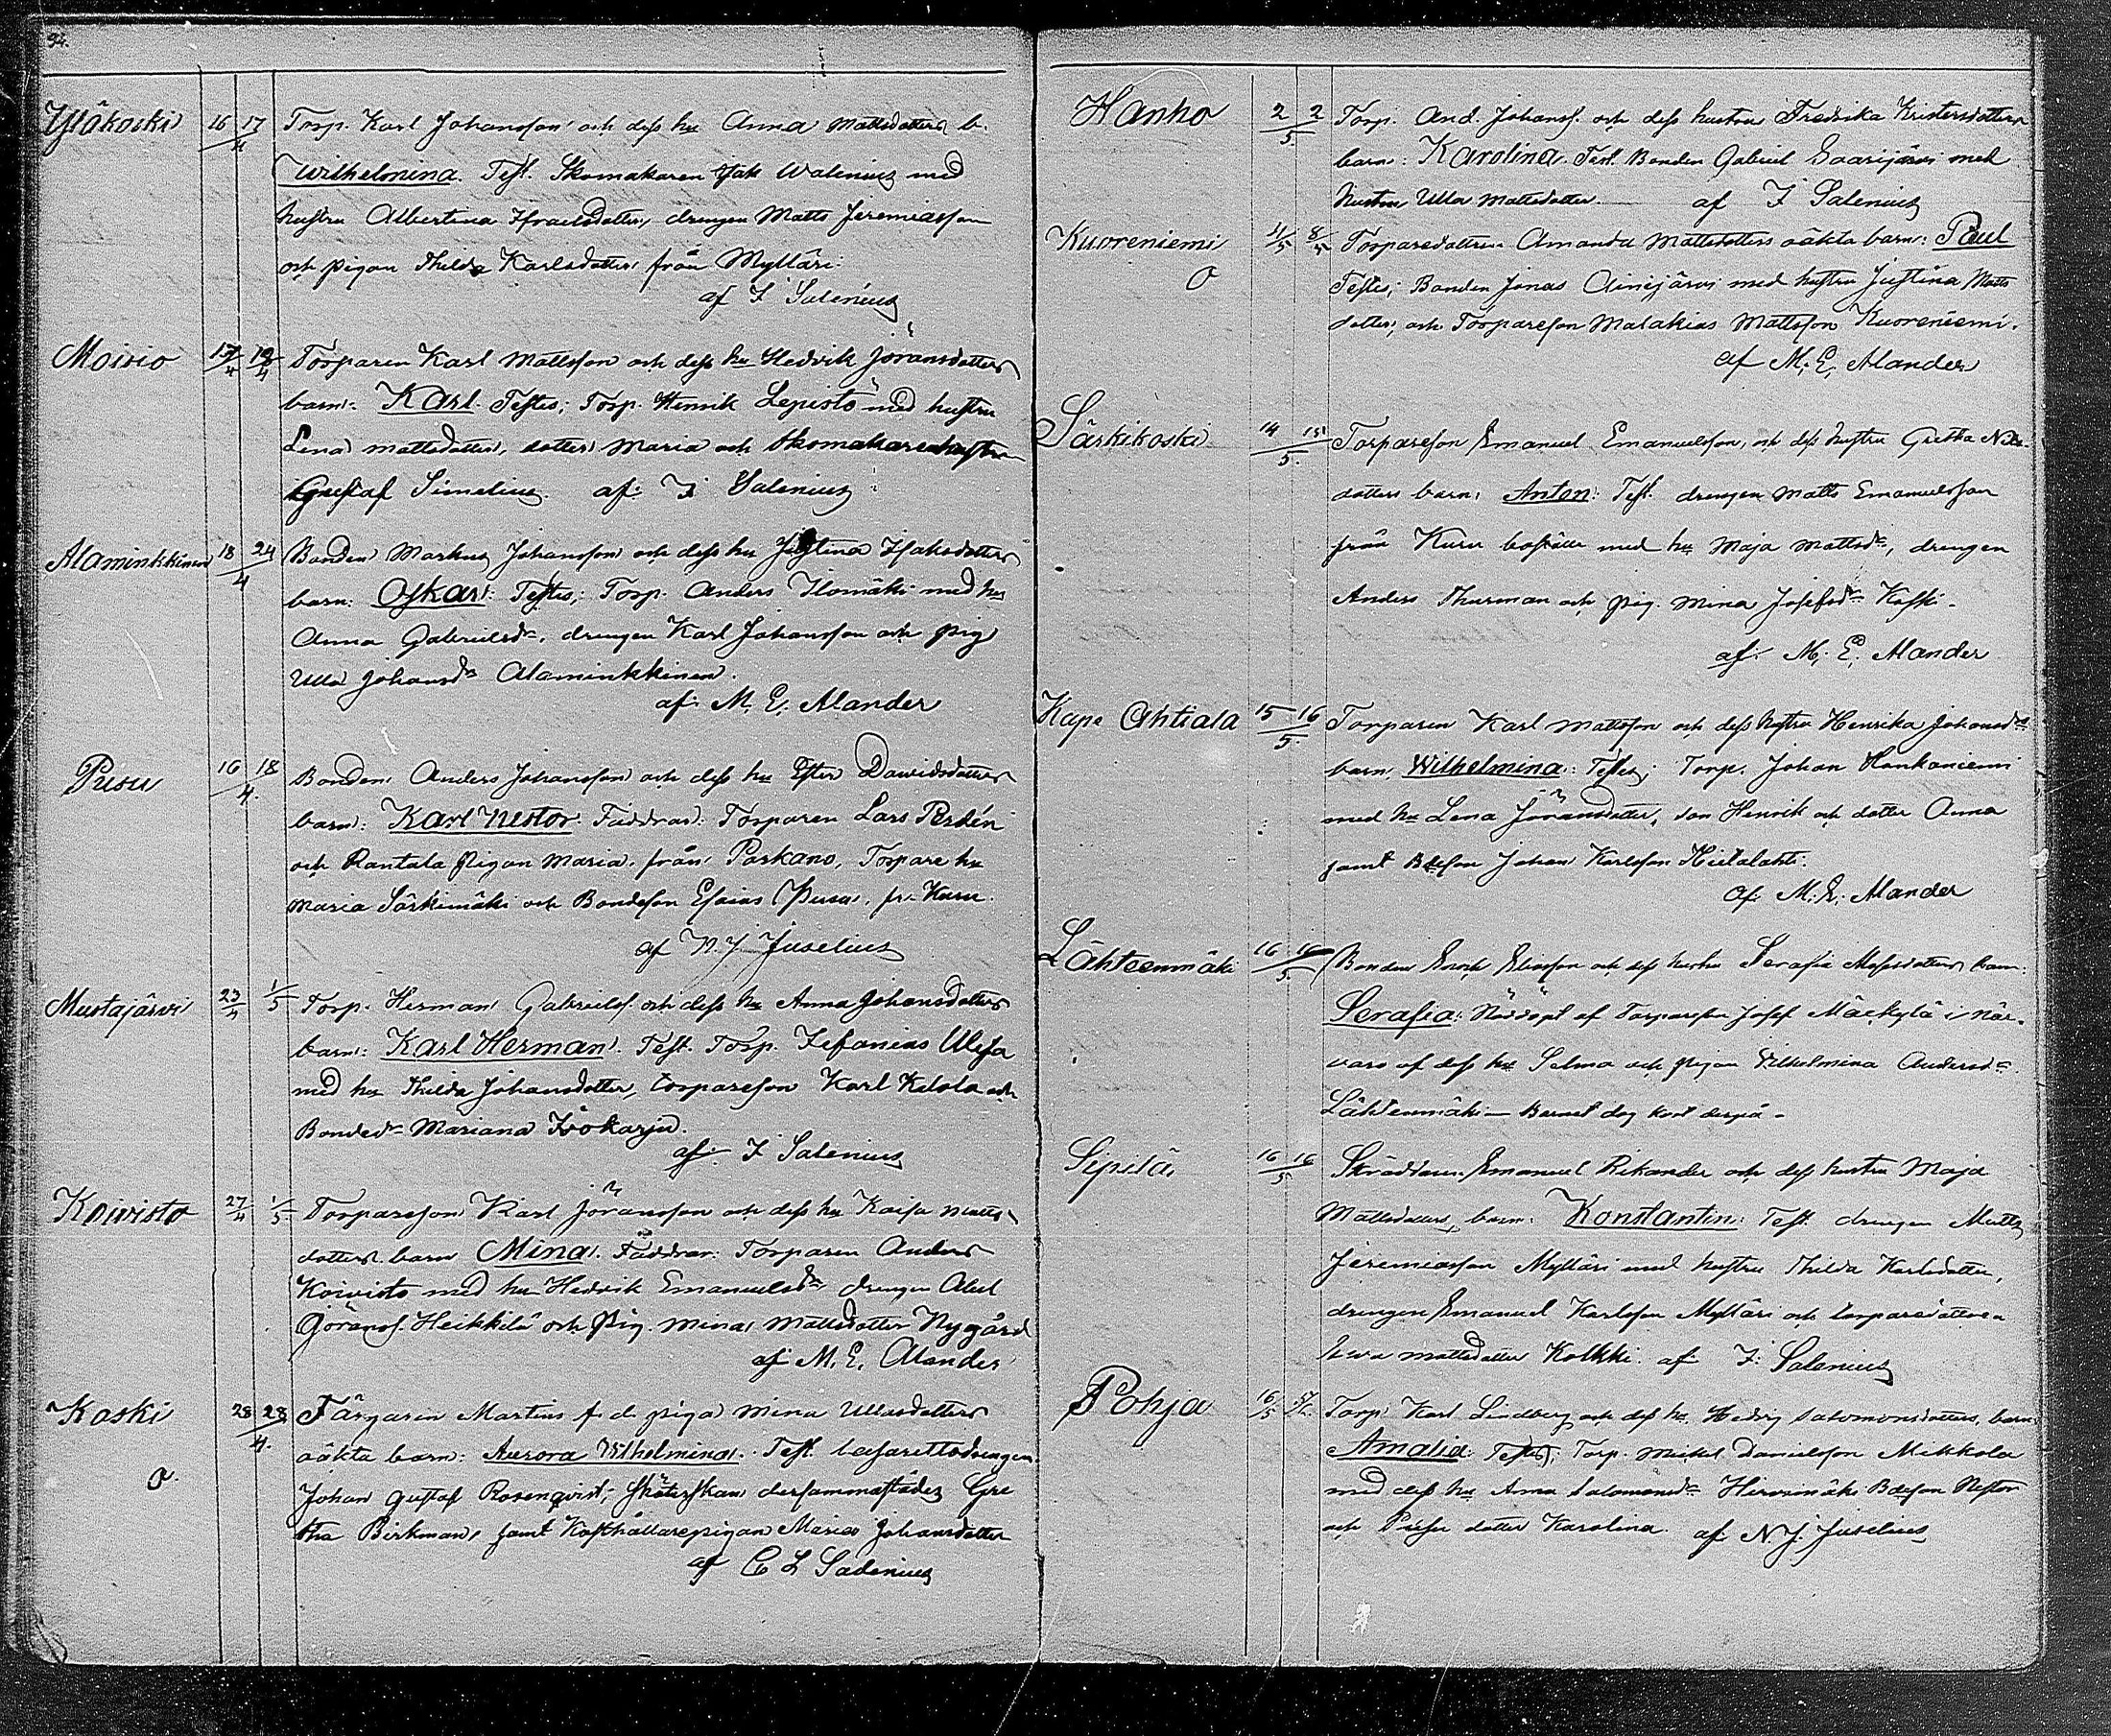 94.
Ylökoski 16 17/4 Torp. Karl Johansson och dess hu Anna Mattsdotters b.
Wilhelmina. Test. Skomakaren Isak Walenius med
hustru Albertina Israelsdotter, drengen Matts Jeremiasson
och pigan Thilda Karlsdotter från Mylläri.
af F Salenius
Moisio 17/4 18/4 Torparen Karl Mattsson och dess hu Hedvik Jöransdotters
barn: Karl. Testes; Torp. Henrik Lepistö med hustru
Lena Mattsdotter, dotter Maria och Skomakarehustru
Gustaf Simelius. af F Salenius
Alaminkkinen 18 24/4 Bonden Markus Johansson och dess hu Justina Isaksdotters
barn: Oskar: Testes; Torp. Anders Ilomäki med hu
Anna Gabrielsdr, drengen Karl Johansson och pig
Ulla Johansdr Alaminkkinen.
af M. E. Alander
Pusu 16 18/4. Bonden Anders Johansson och dess hu Ester Dawidsdotters
barn: Karl Nestor. Faddrar: Torparen Lars Perdén
och Rantala Pigan Maria, från Parkano, Torpare hu
Maria Särkimäki och Bondeson Esaias Pusu, fr. Kuru.
af N. J. Juselius
Mustajärvi 23/4 1/5 Torp. Herman Gabrielss. och dess hu Anna Johansdotters
barn: Karl Herman. Test. Torp. Zefanias
med hu Thilda Johansdotter, torpareson Karl Ketola och
Bondedr Mariana
af F Salenius
Koivisto 27/4 1/5. Torpareson Karl Jöransson och dess hu Kaisa Matts
dotters barn Mina. Faddrar: Torparen Anders
Koivisto med hu Hedvik Emanuelsdr drengen Abel
Görans. Heikkilä och Pig. Mina Mattsdotter Nygård
af M. E. Alander
Koski 28 28/4. Färgaren Martins f. d. piga Mina Ullasdotters
o oäkta barn: Aurora Wilhelmina. Test. lasarettsdrengen
Johan Gustaf Rosenqvist, Sköterskan dersammastädes Gre
tha Birkman, samt Kosthållarepigan Maria Johansdotter
af C L Sadenius
Hanho 2 2/5. Torp. And. Johanss. och dess hustru Fredrika Kristersdotters
barn: Karolina. Test. Bonden Gabriel Saarijärvi med
hustru Ulla Mattsdotter. af F Salenius
Kuoreniemi 4/5 8/5 Torparedottren Amanda Mattsdotters oäkta barn: Paul
o Testes; Bonden Jonas Ainejärvi med hustru Justina Matts
dotter, och Torpareson Malakias Mattsson Kuoreniemi.
af M. E. Alander
Särkikoski 14 15/5. Torpareson Emanuel Emanuelsson, och dess hustru Gretha Nils
dotters barn: Anton: Test. drengen Matts Emanuelsson
från Kuru med hu Maja Mattsdr, drengen
Anders Thurman och pig. Mina Josefsdr Koski.
af M. E. Alander
Kape Ahtiala 15 16/5. Torparen Karl Mattsson och dess hustru Henrika Johansdrs
barn, Wilhelmina: Testes; Torp. Johan Hankaniemi
med hu Lena Jöransdotter, son Henrik och dotter Anna
samt Bdeson Johan Karlsson Hietalahti.
af M. E. Alander
Lähteenmäki 16 16/5. Bonden Enoch Eliasson och dess hustru Serafia Mosisdotters barn:
Serafia: Nöddöpt af Torpareson Josef Mäekylä i när-
varo af dess hu Selma och pigan Vilhelmina Andersdr
Lähteenmäki — Barnet dog kort derpå —
Sipilä 16 16/5. Skräddaren Emanuel Rikander och dess hustru Maja
Mattsdotters barn: Konstantin: Test. drengen Matts
Jeremiasson Mylläri med hustru Thilda Karlsdotter,
drengen Emanuel Karlsson Mylläri och torparedottren
Eva Mattsdotter Kolkki. af F. Salenius
Pohja 16/5 Torp. Karl Lindberg och dess hu Hedvig Salomonsdotters barn
Amalia: Testes; Torp. Mickel Danielsson Mikkola
med dess hu Anna Salomonsdr Hirvimäki Bdeson Nestor
och dotter Karolina. af N. J. Juselius